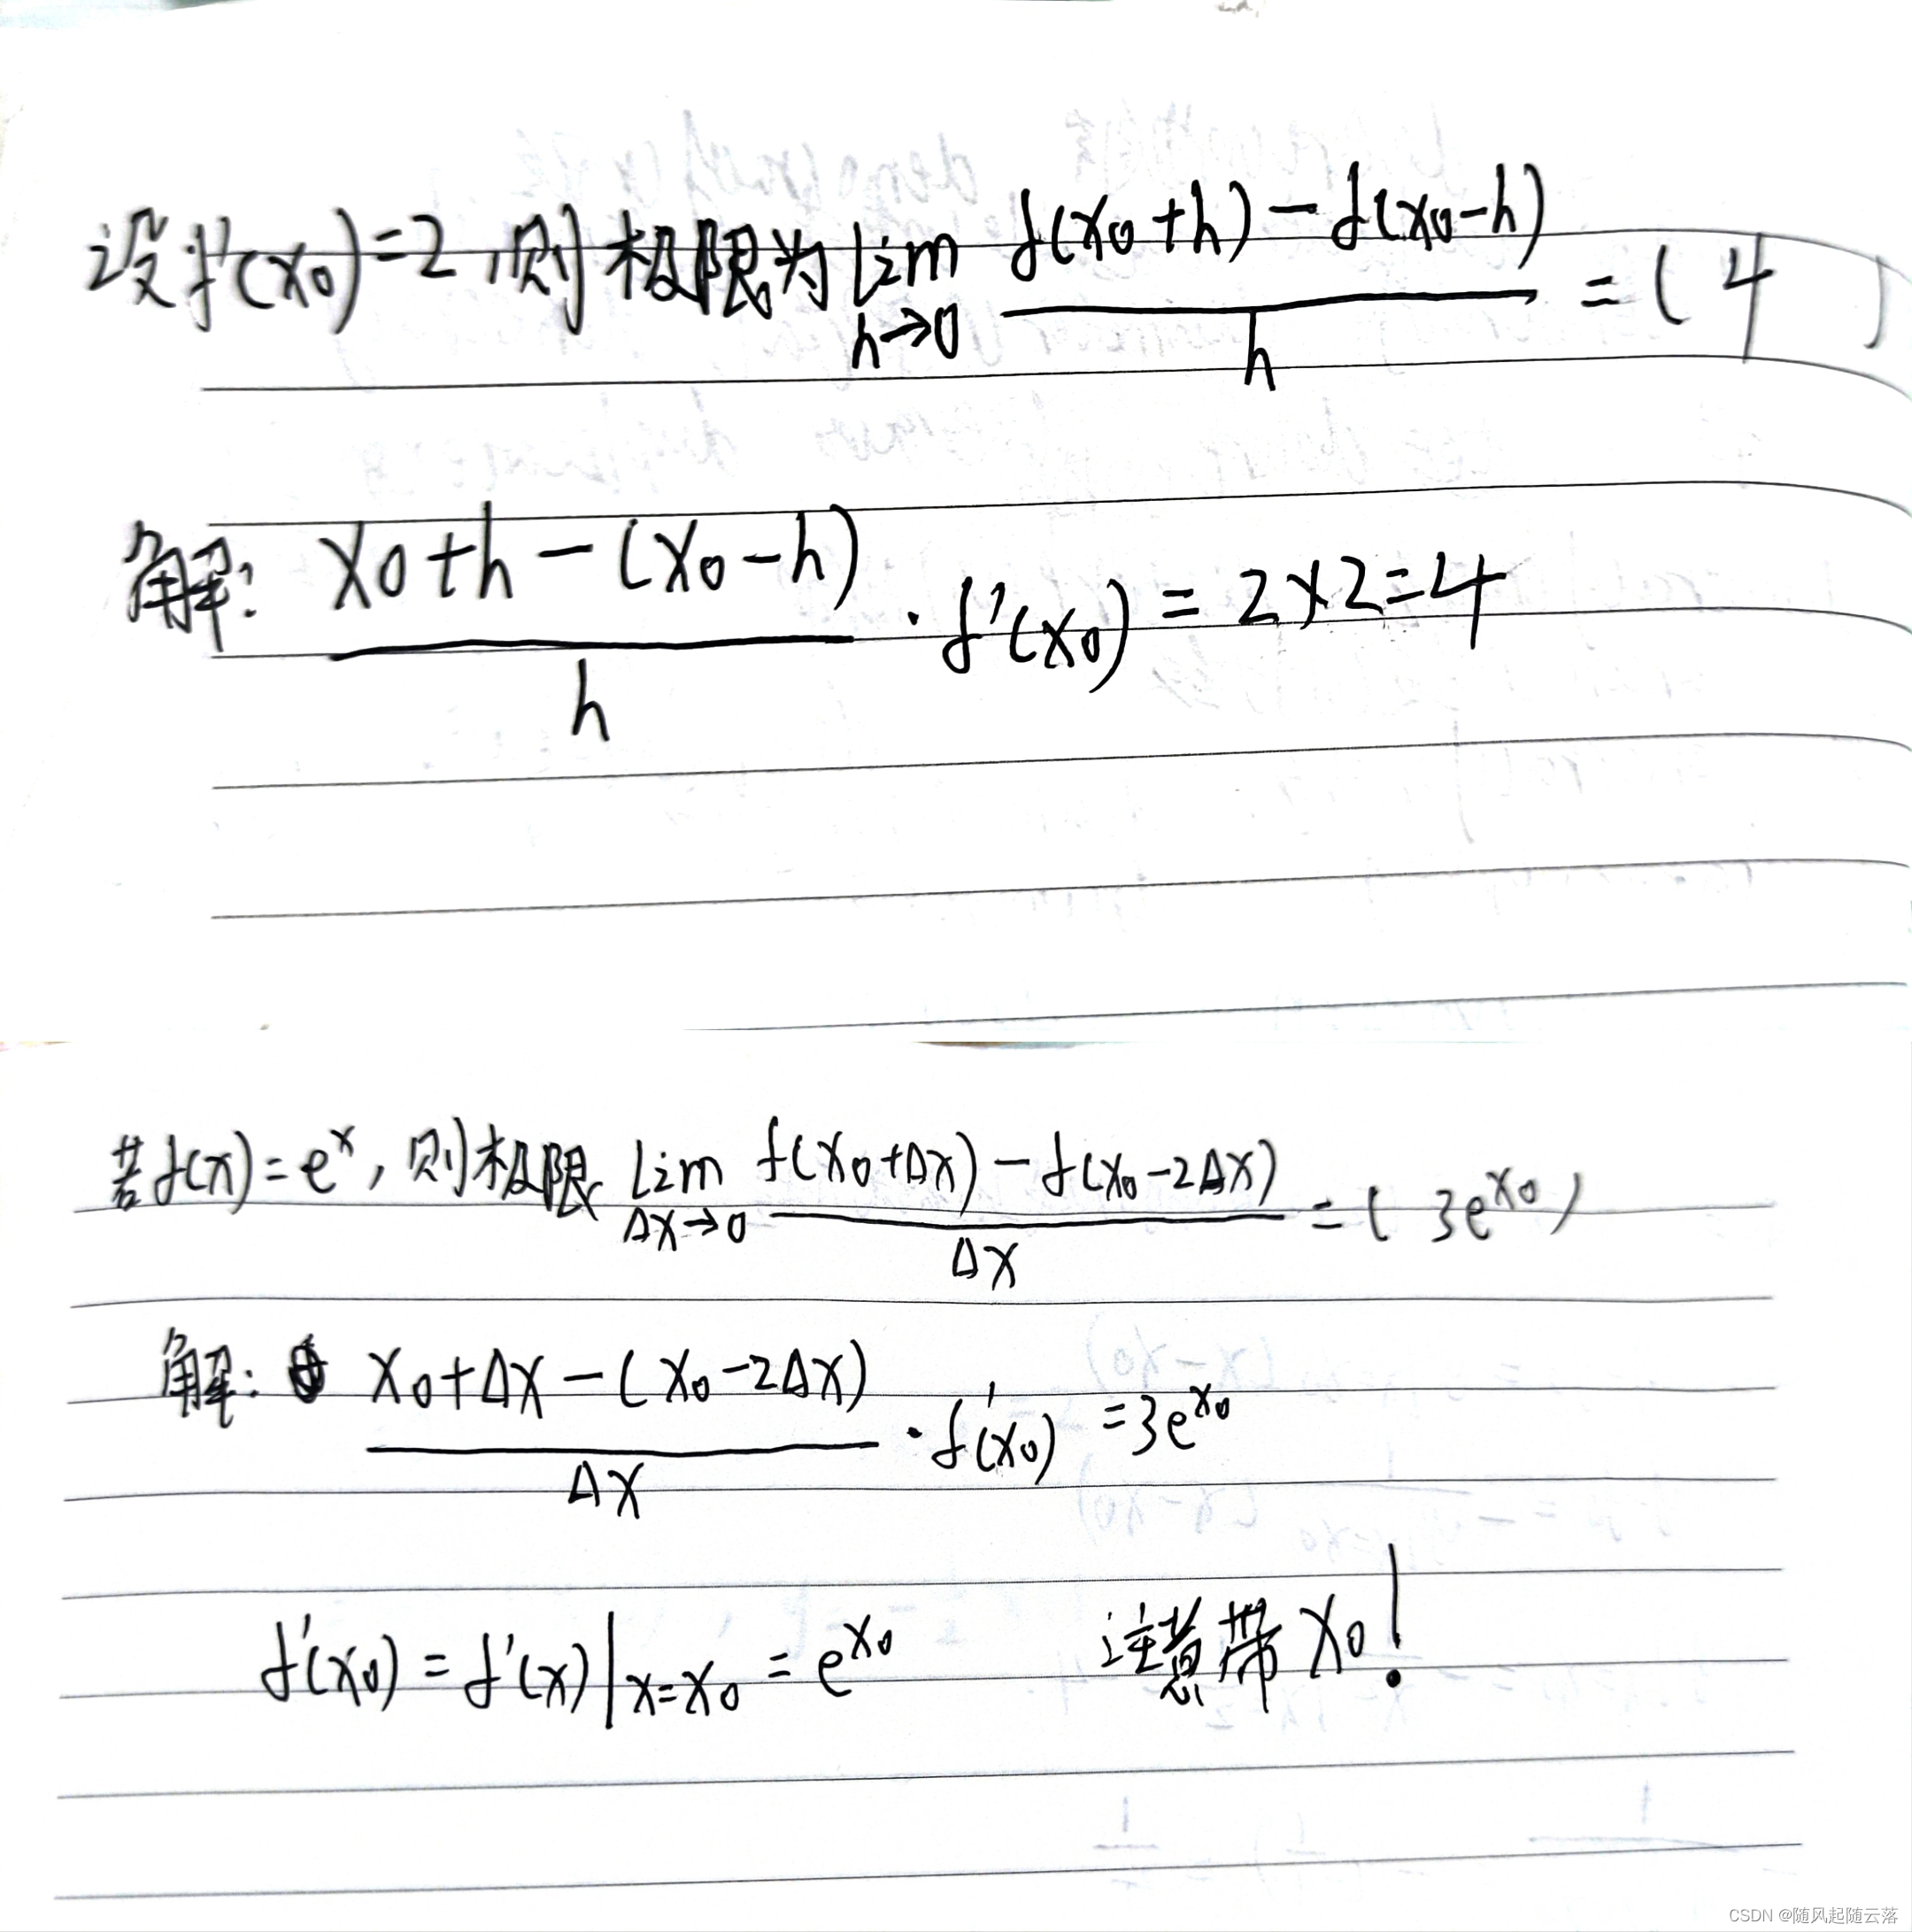 设f'(x₀)=2,则极限为 lim h→0 (f(x₀+h)-f(x₀-h))/h =( 4 )
解: (x₀+h-(x₀-h))/h · f'(x₀) = 2×2=4
若f(x)=eˣ,则极限 lim Δx→0 (f(x₀+Δx)-f(x₀-2Δx))/Δx =( 3e^{x₀} )
解: (x₀+Δx-(x₀-2Δx))/Δx · f'(x₀) =3e^{x₀}
f'(x₀) = f'(x)|x=x₀ = e^{x₀} 注意带 x₀!
CSDN @随风起随云落